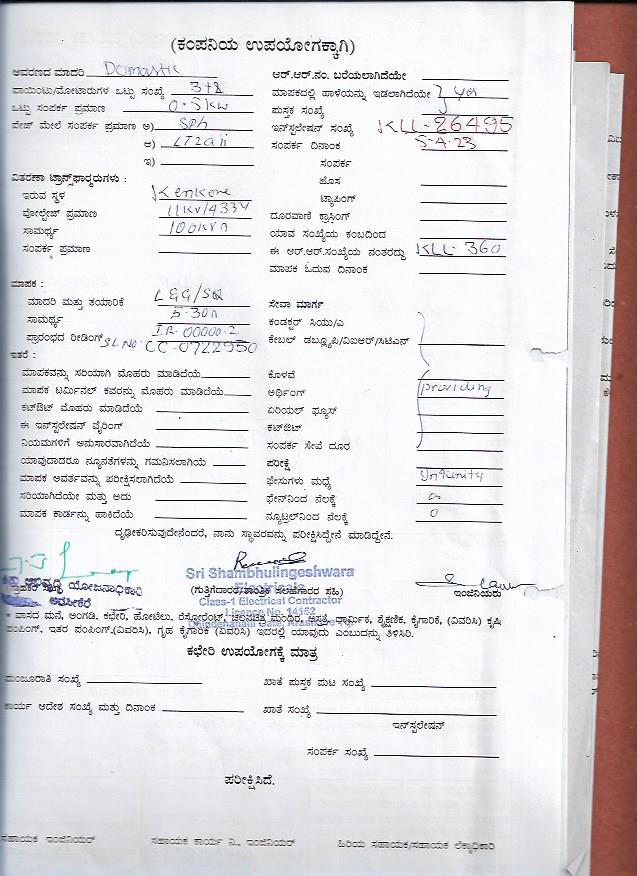 (ಕಂಪನಿಯ ಉಪಯೋಗಕ್ಕಾಗಿ)
ಆವರಣದ ಮಾದರಿ Domastic ಆರ್.ಆರ್.ನಂ. ಬರೆಯಲಾಗಿದೆಯೇ
ಪಾಯಿಂಟು/ಮೋಟಾರುಗಳ ಒಟ್ಟು ಸಂಖ್ಯೆ 3+2 ಮಾಪಕದಲ್ಲಿ ಹಾಳೆಯನ್ನು ಇಡಲಾಗಿದೆಯೇ yes
ಒಟ್ಟು ಸಂಪರ್ಕ ಪ್ರಮಾಣ 0.5kw ಪುಸ್ತಕ ಸಂಖ್ಯೆ
ಪೇಜ್ ಮೇಲೆ ಸಂಪರ್ಕ ಪ್ರಮಾಣ ಅ) SPh ಇನ್‌ಸ್ಟಲೇಷನ್ ಸಂಖ್ಯೆ KLL-26495
ಆ) LT2aii ಸಂಪರ್ಕ ದಿನಾಂಕ 5-4-23
ಇ) ಸಂಪರ್ಕ
ವಿತರಣಾ ಟ್ರಾನ್ಸ್‌ಫಾರ್ಮರುಗಳು : ಹೊಸ
ಇರುವ ಸ್ಥಳ Kenkere ಟ್ಯಾಪಿಂಗ್
ವೋಲ್ಟೇಜ್ ಪ್ರಮಾಣ 11kv/433v ದೂರವಾಣಿ ಕ್ರಾಸಿಂಗ್
ಸಾಮರ್ಥ್ಯ 100kva ಯಾವ ಸಂಖ್ಯೆಯ ಕಂಬದಿಂದ
ಸಂಪರ್ಕ ಪ್ರಮಾಣ ಈ ಆರ್.ಆರ್.ಸಂಖ್ಯೆಯ ನಂತರದ್ದು KLL-360
ಮಾಪಕ ಓದುವ ದಿನಾಂಕ
ಮಾಪಕ :
ಮಾದರಿ ಮತ್ತು ತಯಾರಿಕೆ L&G/SQ ಸೇವಾ ಮಾರ್ಗ
ಸಾಮರ್ಥ್ಯ 5-30A ಕಂಡಕ್ಟರ್ ಸಿಯು/ಎ
ಪ್ರಾರಂಭದ ರೀಡಿಂಗ್ I.R-00000-2 ಕೇಬಲ್ ಡಬ್ಲ್ಯೂಪಿ/ವಿಐಆರ್/ಸಿಟಿಎಸ್
SL NO CC-0722950
ಇತರೆ :
ಮಾಪಕವನ್ನು ಸರಿಯಾಗಿ ಮೊಹರು ಮಾಡಿದೆಯೆ ಕೊಳವೆ
ಮಾಪಕ ಟರ್ಮಿನಲ್ ಕವರನ್ನು ಮೊಹರು ಮಾಡಿದೆಯೆ ಅರ್ಥಿಂಗ್ providing
ಕಟ್‌ಔಟ್ ಮೊಹರು ಮಾಡಿದೆಯೆ ಏರಿಯಲ್ ಫ್ಯೂಸ್
ಈ ಇನ್‌ಸ್ಟಲೇಷನ್ ವೈರಿಂಗ್ ಕಟ್‌ಔಟ್
ನಿಯಮಗಳಿಗೆ ಅನುಸಾರವಾಗಿದೆಯೆ ಸಂಪರ್ಕ ಸೇವೆ ದೂರ
ಯಾವುದಾದರೂ ನ್ಯೂನತೆಗಳನ್ನು ಗಮನಿಸಲಾಗಿಯೆ ಪರೀಕ್ಷೆ
ಮಾಪಕ ಆವರ್ತವನ್ನು ಪರೀಕ್ಷಿಸಲಾಗಿದೆಯೆ ಫೇಸುಗಳು ಮಧ್ಯೆ Infinity
ಸರಿಯಾಗಿದೆಯೇ ಮತ್ತು ಅದು ಫೇಸ್‌ನಿಂದ ನೆಲಕ್ಕೆ
ಮಾಪಕ ಕಾರ್ಡನ್ನು ಹಾಕಿದೆಯೆ ನ್ಯೂಟ್ರಲ್‌ನಿಂದ ನೆಲಕ್ಕೆ 0
ದೃಢೀಕರಿಸುವುದೇನೆಂದರೆ, ನಾನು ಸ್ಥಾವರವನ್ನು ಪರೀಕ್ಷಿಸಿದ್ದೇನೆ ಮಾಡಿದ್ದೇನೆ.
Sri Shambhulingeshwara
Electricals
(ಗುತ್ತಿಗೆದಾರರ/ತಾಂತ್ರಿಕ ಸಲಹಾಗಾರರ ಸಹಿ) ಇಂಜಿನಿಯರು
Class-1 Electrical Contractor
Licence No. 14152
* ವಾಸದ ಮನೆ, ಅಂಗಡಿ, ಕಛೇರಿ, ಹೋಟೆಲು, ರೆಸ್ಟೋರೆಂಟ್, ಚಲನಚಿತ್ರ ಮಂದಿರ, ಆಸ್ಪತ್ರೆ, ಧಾರ್ಮಿಕ, ಶೈಕ್ಷಣಿಕ, ಕೈಗಾರಿಕೆ, (ವಿವರಿಸಿ) ಕೃಷಿ
ಪಂಪಿಂಗ್, ಇತರ ಪಂಪಿಂಗ್,(ವಿವರಿಸಿ), ಗೃಹ ಕೈಗಾರಿಕೆ (ವಿವರಿಸಿ) ಇದರಲ್ಲಿ ಯಾವುದು ಎಂಬುದನ್ನು ತಿಳಿಸಿರಿ.
ಕಛೇರಿ ಉಪಯೋಗಕ್ಕೆ ಮಾತ್ರ
ಮಂಜೂರಾತಿ ಸಂಖ್ಯೆ ಖಾತೆ ಪುಸ್ತಕ ಪುಟ ಸಂಖ್ಯೆ
ಕಾರ್ಯ ಆದೇಶ ಸಂಖ್ಯೆ ಮತ್ತು ದಿನಾಂಕ ಖಾತೆ ಸಂಖ್ಯೆ
ಇನ್‌ಸ್ಟಲೇಷನ್
ಸಂಪರ್ಕ ಸಂಖ್ಯೆ
ಪರೀಕ್ಷಿಸಿದೆ.
ಸಹಾಯಕ ಇಂಜಿನಿಯರ್ ಸಹಾಯಕ ಕಾರ್ಯ ನಿ., ಇಂಜಿನಿಯರ್ ಹಿರಿಯ ಸಹಾಯಕ/ಸಹಾಯಕ ಲೆಕ್ಕಾಧಿಕಾರಿ